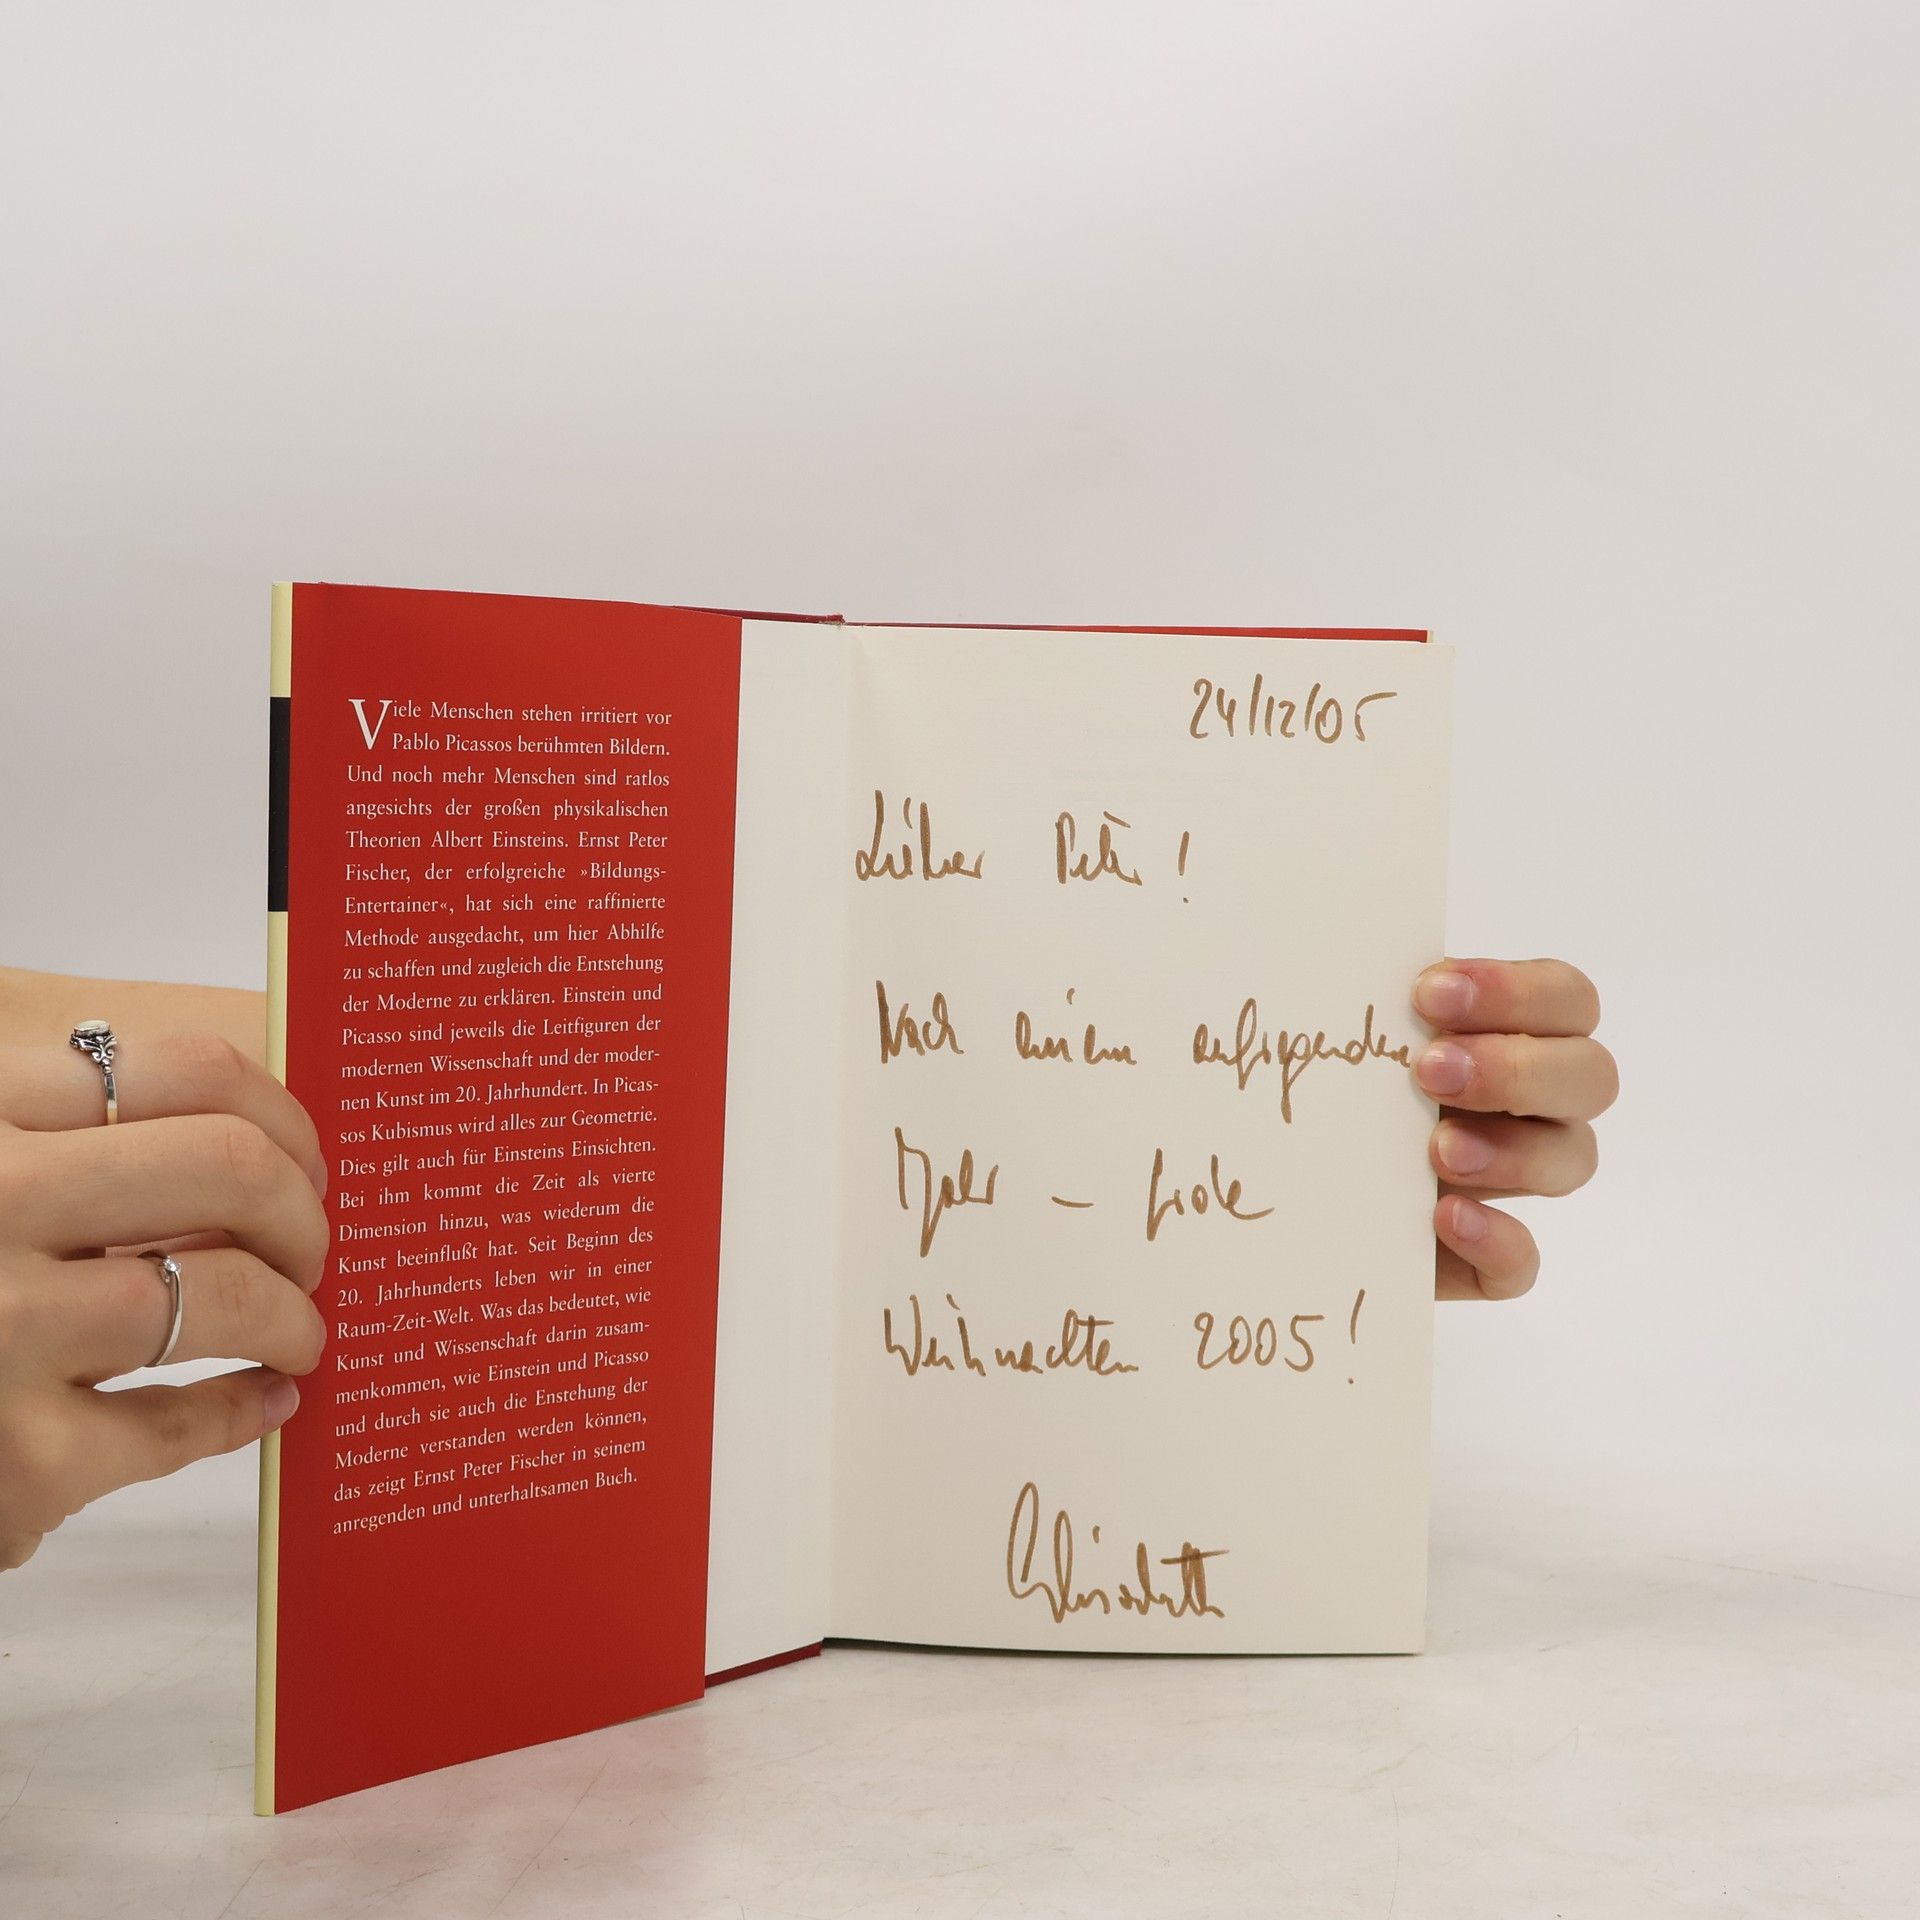 Viele Menschen stehen irritiert vor
Pablo Picassos berühmten Bildern.
Und noch mehr Menschen sind ratlos
angesichts der großen physikalischen
Theorien Albert Einsteins. Ernst Peter
Fischer, der erfolgreiche »Bildungs-
Entertainer«, hat sich eine raffinierte
Methode ausgedacht, um hier Abhilfe
zu schaffen und zugleich die Entstehung
der Moderne zu erklären. Einstein und
Picasso sind jeweils die Leitfiguren der
modernen Wissenschaft und der moder-
nen Kunst im 20. Jahrhundert. In Picas-
sos Kubismus wird alles zur Geometrie.
Dies gilt auch für Einsteins Einsichten.
Bei ihm kommt die Zeit als vierte
Dimension hinzu, was wiederum die
Kunst beeinflußt hat. Seit Beginn des
20. Jahrhunderts leben wir in einer
Raum-Zeit-Welt. Was das bedeutet, wie
Kunst und Wissenschaft darin zusam-
menkommen, wie Einstein und Picasso
und durch sie auch die Enstehung der
Moderne verstanden werden können,
das zeigt Ernst Peter Fischer in seinem
anregenden und unterhaltsamen Buch.
24/12/05
Lieber Peter!
Nach einem aufregenden
Jahr – frohe
Weihnachten 2005!
Elisabeth